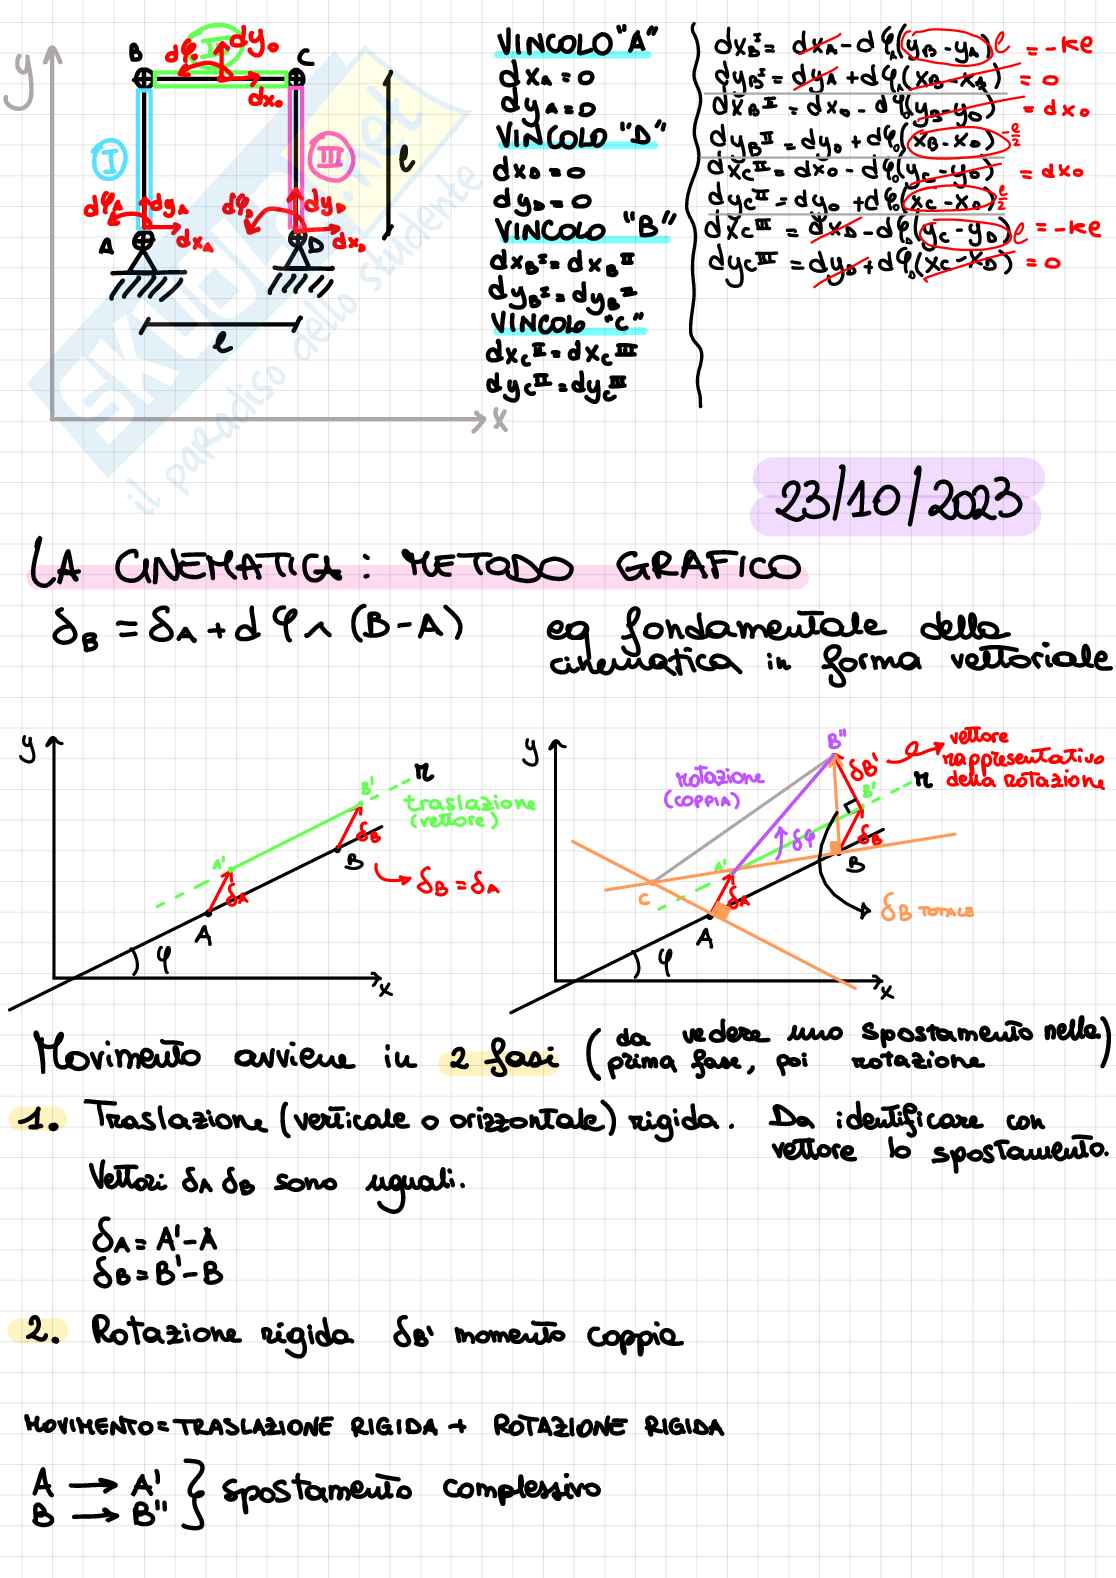 y
B
dφ₀
I
dy₀
C
dx₀
I
III
l
dφA
dyA
dφD
dyD
A
dxA
D
dxD
l
x
SKUOLA.net
il paradiso dello studente
VINCOLO "A"
dxA = 0
dyA = 0
VINCOLO "D"
dxD = 0
dyD = 0
VINCOLO "B"
dxB^I = dxB^II
dyB^I = dyB^II
VINCOLO "C"
dxC^II = dxC^III
dyC^II = dyC^III
dxB^I = dxA - dφA(yB - yA) l = -kl
dyB^I = dyA + dφA(xB - xA) = 0
dxB^II = dx₀ - dφ₀(yB - y₀) = dx₀
dyB^II = dy₀ + dφ₀(xB - x₀) -l/2
dxC^II = dx₀ - dφ₀(yC - y₀) = dx₀
dyC^II = dy₀ + dφ₀(xC - x₀) l/2
dxC^III = dxD - dφD(yC - yD) l = -kl
dyC^III = dyD + dφD(xC - xD) = 0
23/10/2023
LA CINEMATICA: METODO GRAFICO
δB = δA + dφ ∧ (B-A) eq fondamentale della
cinematica in forma vettoriale
y
B'
r
traslazione
(vettore)
A'
δB
B
δA
δB = δA
A
φ
x
y
B''
δB'
vettore
rappresentativo
della rotazione
rotazione
(COPPIA)
B'
r
δφ
δB
A'
B
C
δA
δB TOTALE
A
φ
x
Movimento avviene in 2 fasi (da vedere uno spostamento nella
prima fase, poi rotazione)
1. Traslazione (verticale o orizzontale) rigida. Da identificare con
vettore lo spostamento.
Vettori δA δB sono uguali.
δA = A' - A
δB = B' - B
2. Rotazione rigida δB' momento coppia
MOVIMENTO = TRASLAZIONE RIGIDA + ROTAZIONE RIGIDA
A → A'
B → B'' } spostamento complessivo